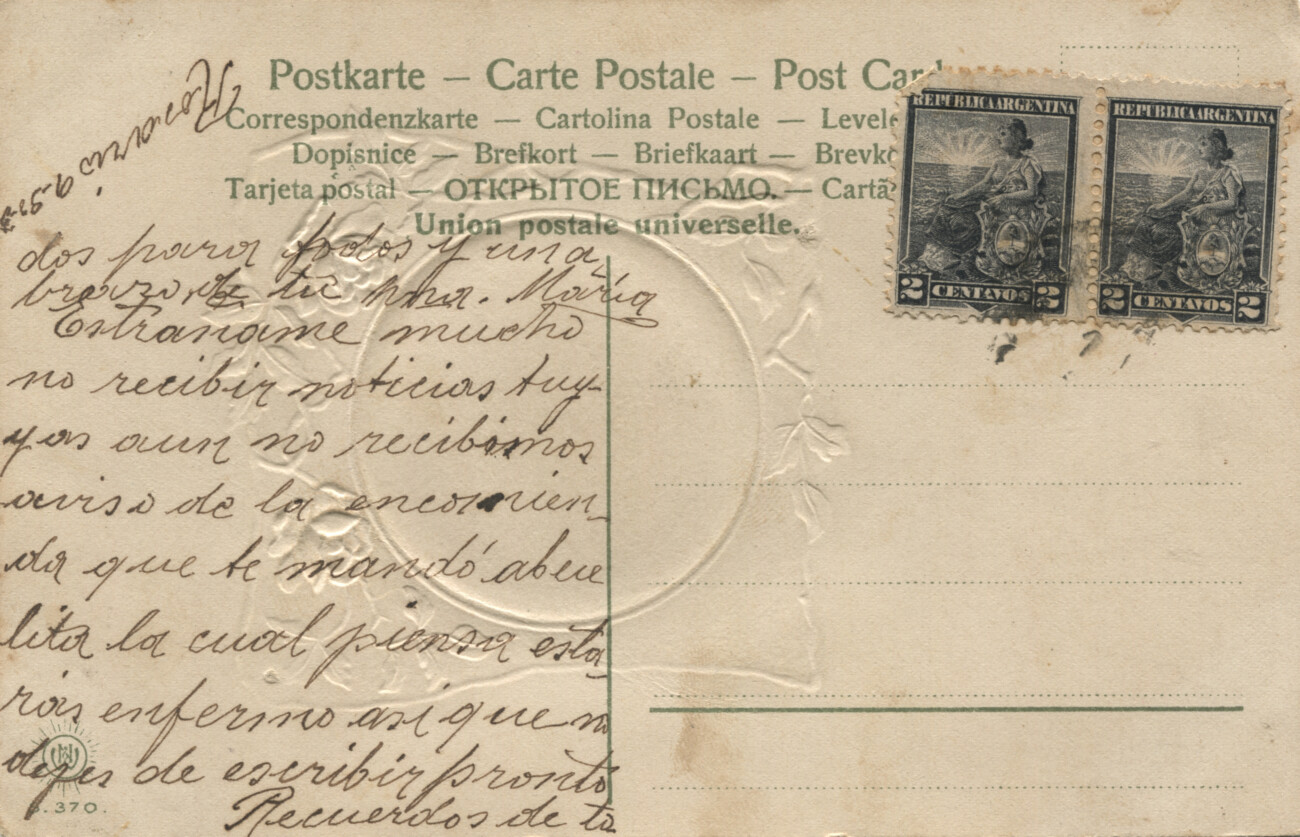 Postkarte — Carte Postale — Post Card
Correspondenzkarte — Cartolina Postale — Levele
Dopisnice — Brefkort — Briefkaart — Brevko
Tarjeta postal — ОТКРЫТОЕ ПИСЬМО. — Cartã
Union postale universelle.
REPUBLICA ARGENTINA
2 CENTAVOS 2
REPUBLICA ARGENTINA
2 CENTAVOS 2
dos para todos y una
brazo de tu hna. María
Estrañame mucho
no recibir noticias tuy-
yas aun no recibimos
aviso de la encomien_
da que te mandó abue
lita la cual piensa esta
rás enfermo asi que no
dejes de escribir pronto
Recuerdos de to
370.